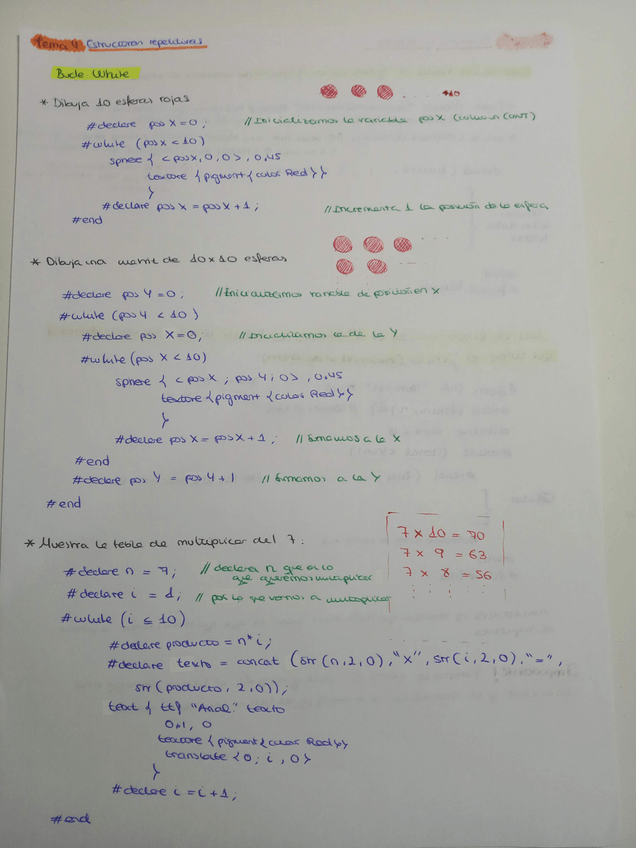 Tema 4 Estructuras repetitivas
Bucle While
* Dibuja 10 esferas rojas
. . . . x10
#declare pos X = 0; //Inicializamos la variable pos X (column cont)
#while (pos X < 10)
sphere { < pos X, 0, 0 > , 0,45
texture { pigment { color Red } }
}
#declare pos X = pos X + 1; //Incrementa 1 la posición de la esfera
#end
* Dibuja una matriz de 10 x 10 esferas
#declare pos Y = 0; //Inicializamos variable de posición en X
#while (pos Y < 10)
#declare pos X = 0; //Inicializamos la de la Y
#while (pos X < 10)
sphere { < pos X ; pos Y ; 0 > , 0,45
texture { pigment { color Red } }
}
#declare pos X = pos X + 1; //Sumamos a la X
#end
#declare pos Y = pos Y + 1 //Sumamos a la Y
#end
* Muestra la tabla de multiplicar del 7:
7 x 10 = 70
7 x 9 = 63
7 x 8 = 56
#declare n = 7; //declara n que es lo
que queremos multiplicar
#declare i = 1; // por lo que vamos a multiplicar
#while (i ≤ 10)
#declare producto = n * i;
#declare texto = concat (str (n,2,0), "X", str (i,2,0), "=",
str (producto, 2,0));
text { ttf "Arial" texto
0,1, 0
texture { pigment { color Red } }
translate < 0; i, 0 >
}
#declare i = i + 1;
#end